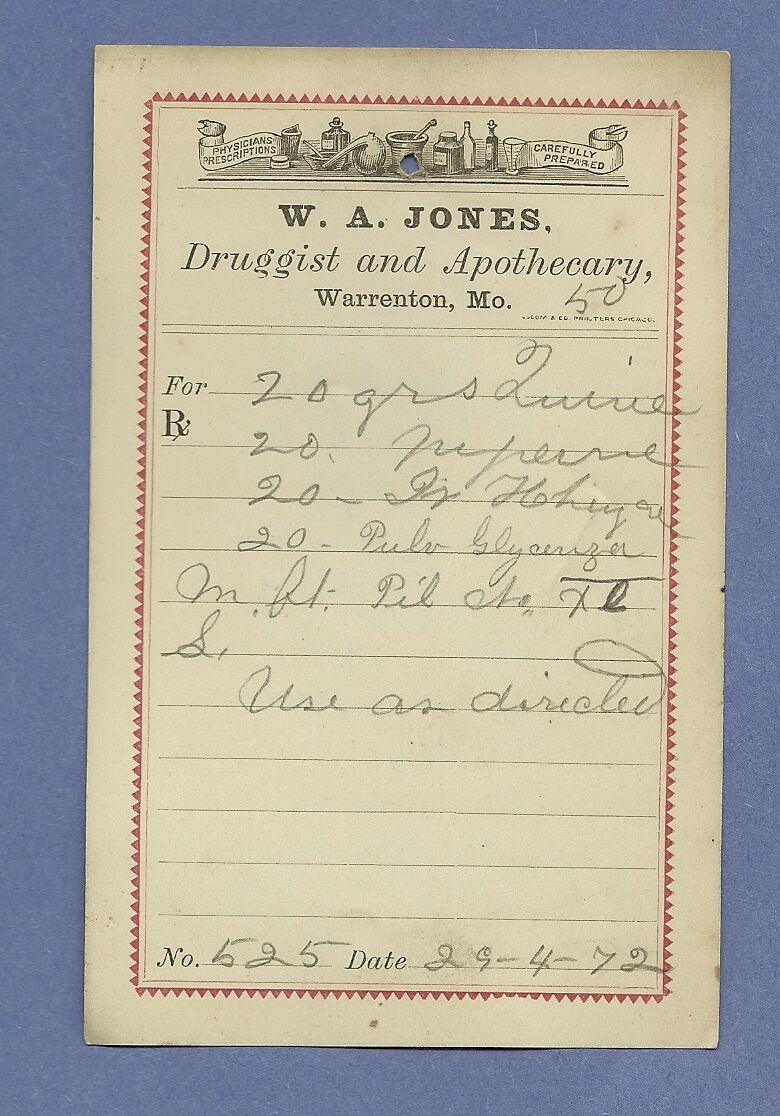 PHYSICIANS PRESCRIPTIONS
CAREFULLY PREPARED
W. A. JONES,
Druggist and Apothecary,
Warrenton, Mo. 50
& CO. PRINTERS CHICAGO.
For 20 grs Quine
Rx 20. Piperine
20 -
20 - Pulv Glycerrza
M. ft. Pil No. XL
S.
Use as directed
No. 525 Date 29-4-72